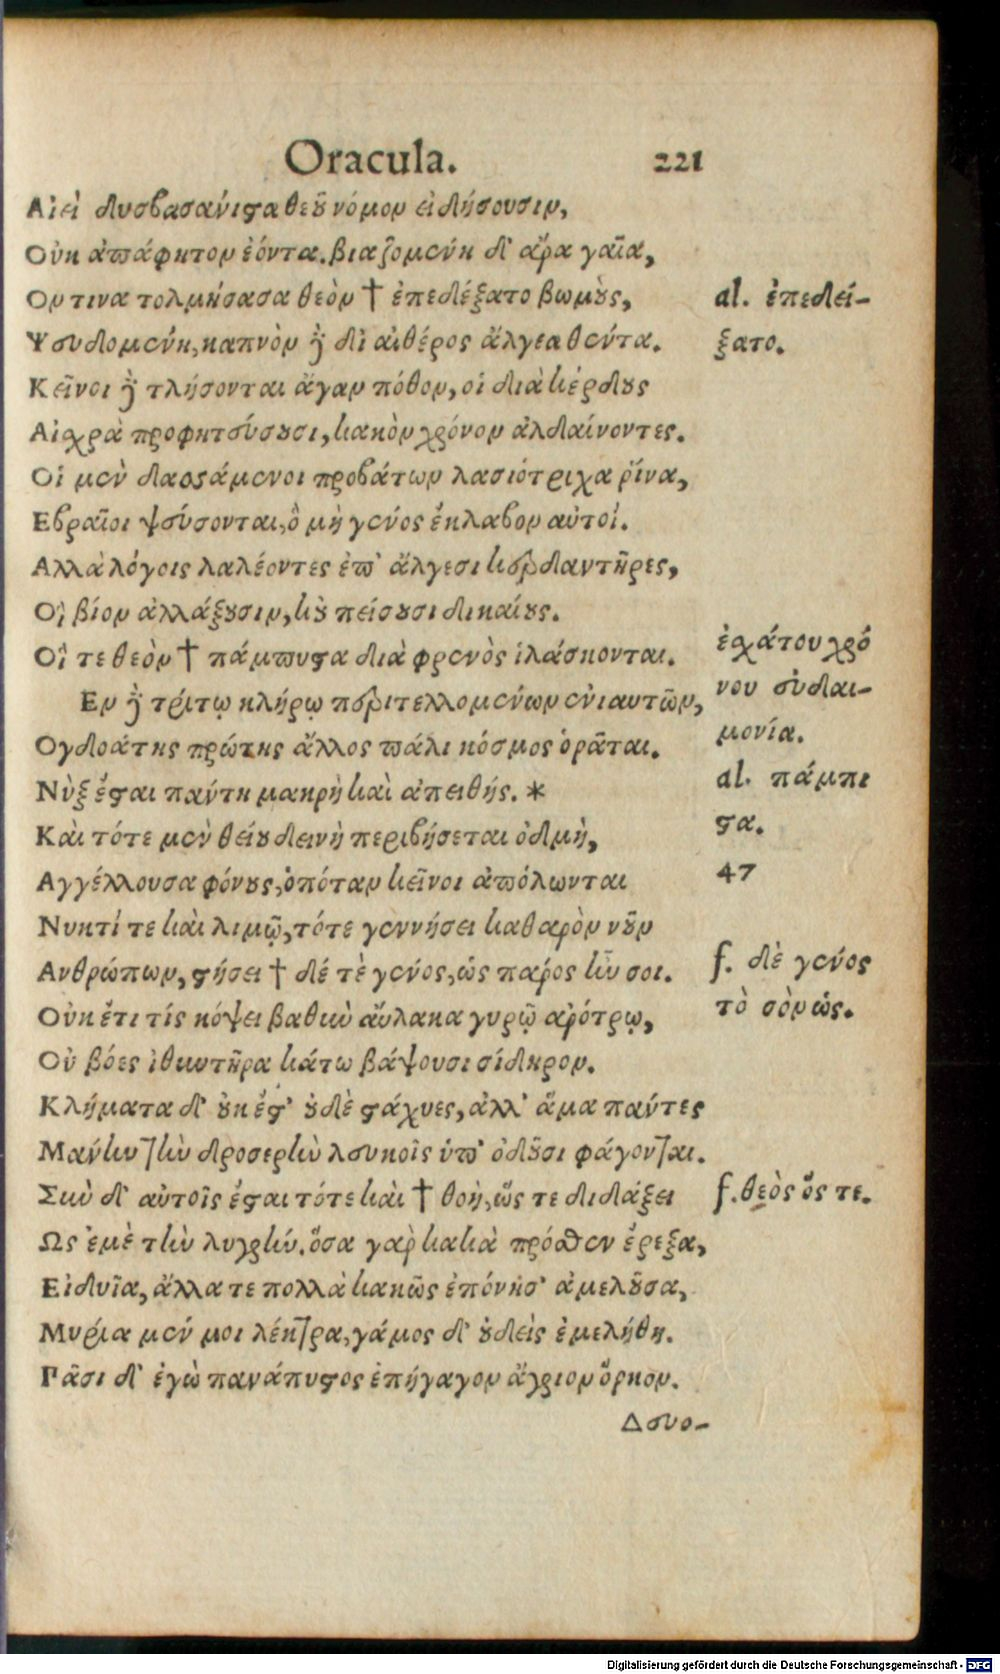 Oracula. 221
Αἰεὶ δυσβασάνιστα θεοῦ νόμον εἰδήσουσιν,
Οὐκ ἀπάφητον ἐόντα. βιαζομένη δ' ἄρα γαῖα,
Ον τινα τολμήσασα θεὸν † ἐπεδέξατο βωμοὺς,
Ψευδομένη, καπνὸν ἢ δι αἰθέρος ἄλγεα θέντα.
Κεῖνοι ἢ τλήσονται ἄγαν πόθον, οἱ διὰ κέρδους
Αἰχρὰ προφητεύσουσι, κακὸν χρόνον ἀλδαίνοντες.
Οἱ μὲν δαοσάμενοι προβάτων λασιότριχα ῥίνα,
Εβραῖοι ψεύσονται, ὃ μὴ γένος ἔκλαβον αὐτοί.
Αλλὰ λόγοις λαλέοντες ἐπ' ἄλγεσι κερδαντῆρες,
Οὶ βίον ἀλλάξουσιν, κοὐ πείσουσι δικαίους.
Οἵ τε θεὸν † πάμπυστα διὰ φρενὸς ἱλάσκονται.
Εν δὲ τρίτῳ κλήρῳ περιτελλομένων ἐνιαυτῶν,
Ογδοάτης πρώτης ἄλλος πάλι κόσμος ὁρᾶται.
Νὺξ ἔσται πάντη μακρὴ καὶ ἀπειθής. *
Καὶ τότε μὲν θείου δεινὴ περιβήσεται ὀδμὴ,
Αγγέλλουσα φόνους, ὁπόταν κεῖνοι ἀπόλωνται
Νυκτί τε καὶ λιμῷ, τότε γεννήσει καθαρὸν νοῦν
Ανθρώπων, στήσει † δέ τὲ γένος, ὡς πάρος ἦν σοι.
Οὐκ ἔτι τίς κόψει βαθὺν αὔλακα γυρῷ ἀρότρῳ,
Οὐ βόες ἰθυντῆρα κάτω βάψουσι σίδηρον.
Κλήματα δ' οὐκ ἔστ' οὐδὲ στάχυες, ἀλλ' ἅμα πάντες
Μάννην τὴν δροσερὴν λευκοῖς ὑπ' ὀδοῦσι φάγονται.
Σὺν δ' αὐτοῖς ἔσται τότε καὶ † θοὴ, ὥς τε διδάξει
Ως ἐμὲ τὴν λυγρήν. ὅσα γὰρ κακὰ πρόσθεν ἔρεξα,
Εἰδυῖα, ἄλλα τε πολλὰ κακῶς ἐπόνησ' ἀμελοῦσα,
Μυρία μέν μοι λέκτρα, γάμος δ' οὐδεὶς ἐμελήθη.
Πᾶσι δ' ἐγὼ πανάπυστος ἐπήγαγον ἄγριον ὅρκον.
Δευο-
al. ἐπεδεί-
ξατο.
ἐχάτου χρό
νου εὐδαι-
μονία.
al. πάμπι
στα.
47
f. δὲ γένος
τὸ σὸν ὡς.
f. θεὸς ὅς τε.
Digitalisierung gefördert durch die Deutsche Forschungsgemeinschaft - DFG